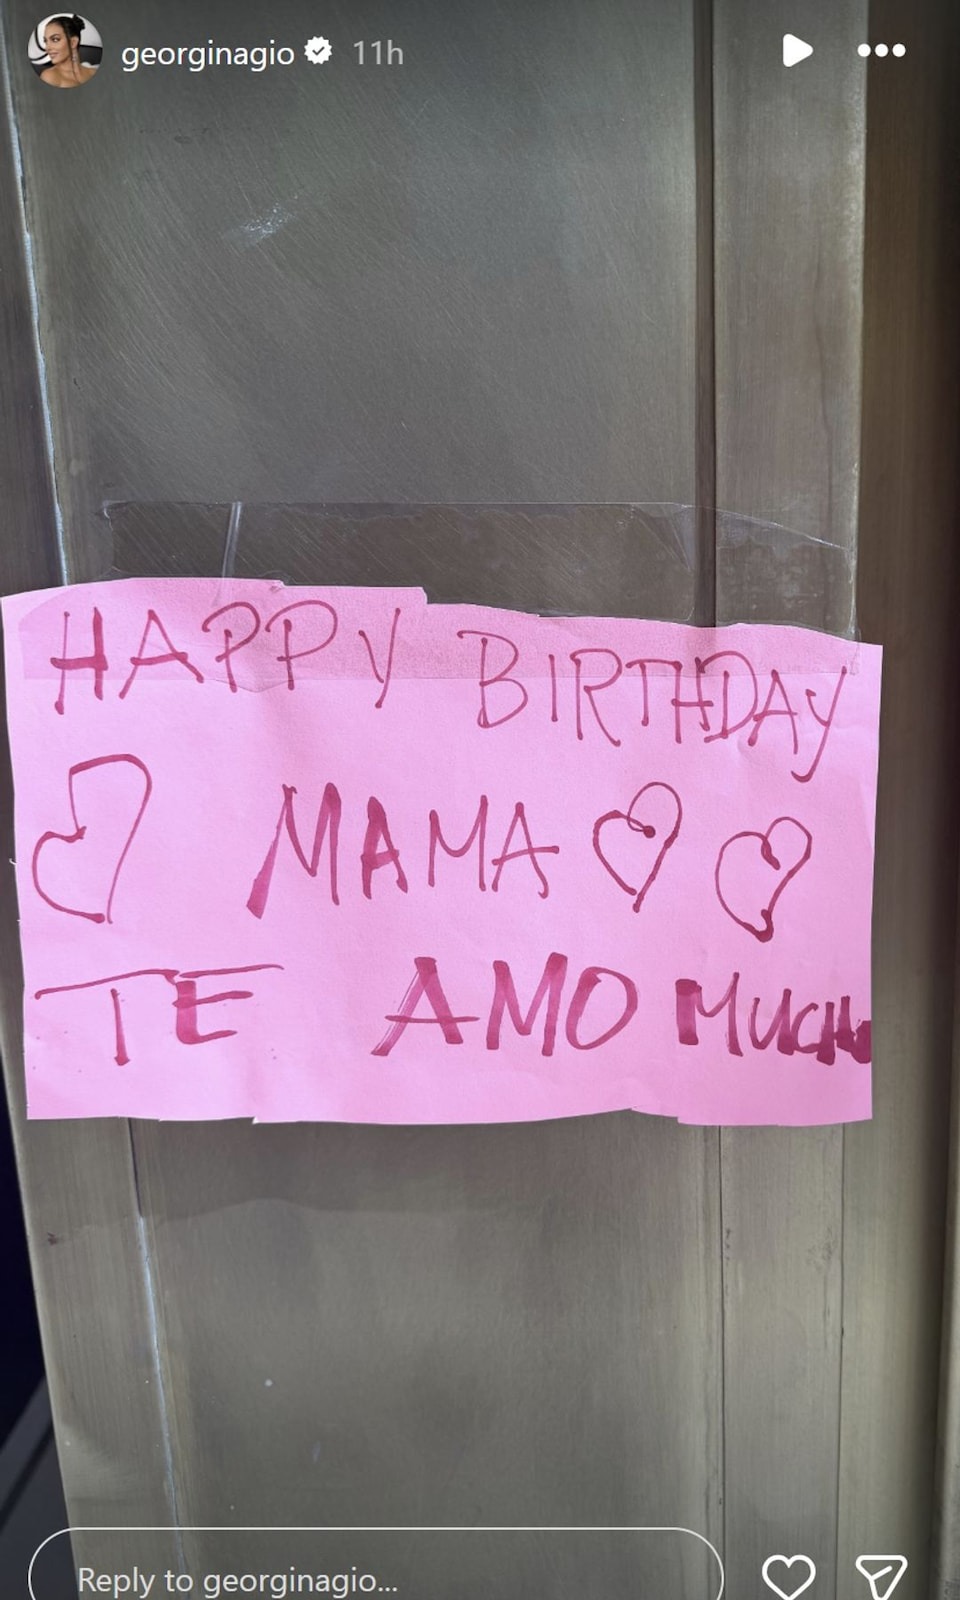 georginagio 11h
HAPPY BIRTHDAY
MAMA
TE AMO MUCH
Reply to georginagio...